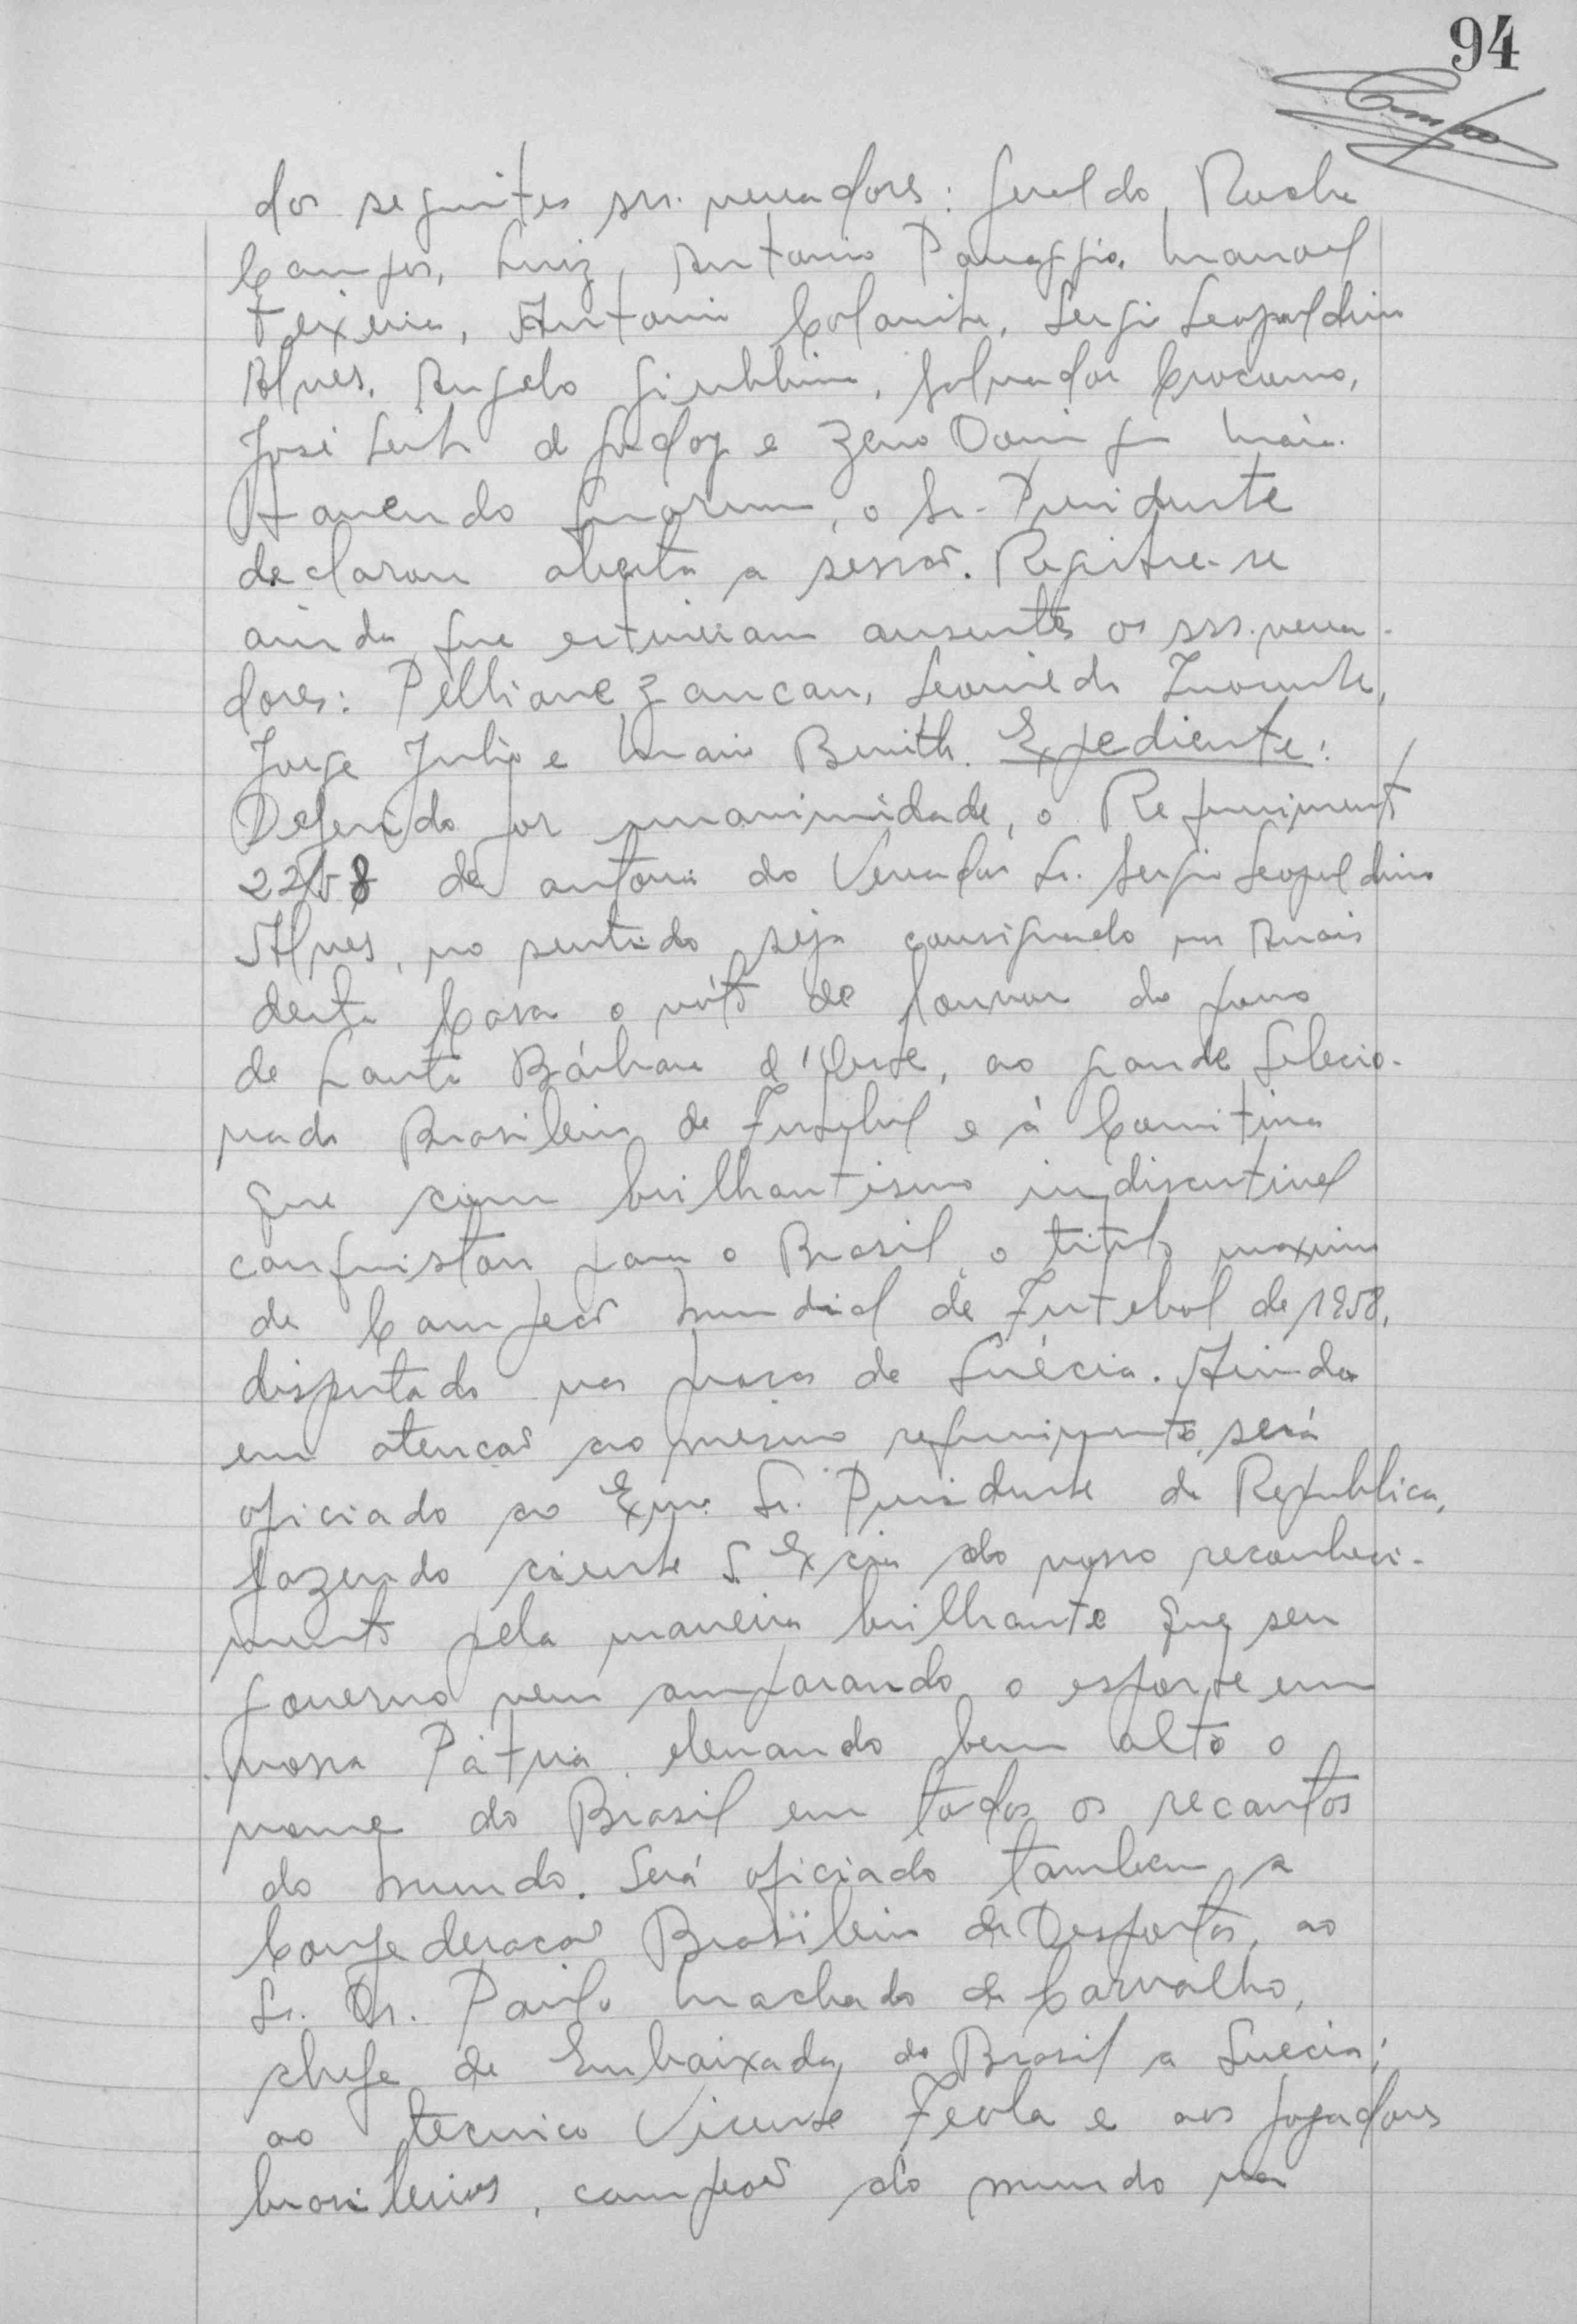 94
dos seguintes srs. vereadores: Geraldo Rocha
Campos, Luiz Antonio Panaggio, Manoel
Teixeira, Antonio Colanite, Sergio Leopoldino
Alves, Angelo Giubbina, Salvador Crocomo,
José Leite d Godoy e Zeno Domingos Maia.
Havendo quorum, o Sr. Presidente
declarou aberta a sessão. Registre-se
ainda que estiveram ausentes os srs. verea-
dores: Zancan, Leonieds
Jorge Julio e Mario Benith. Expediente:
Deferido por unanimidade, o Requerimento
22/58 de autoria do Vereador Sr. Sergio Leopoldino
Alves, no sentido seja consignado nos Anais
desta Casa o vóto de louvor do povo
de Santa Bárbara d'Oeste, ao grande Selecio-
nado Brasileiro de Futebol e á Comitiva
que com brilhantismo indiscutivel
conquistou para o Brasil, o titulo maximo
de Campeão Mundial de Futebol de 1958,
disputado na Suécia. Ainda
em atenção ao mesmo requerimento, será
oficiado ao Exmo. Sr. Presidente da Republica,
fazendo ciente S. Excia do nosso reconheci-
mento pela maneira brilhante que seu
governo vem amparando o esporte em
nossa Pátria, elevando bem alto o
nome do Brasil em todos os recantos
do mundo. Será oficiado tambem, a
Confederação Brasileira de Desportos, ao
Sr. Dr. Paulo Machado de Carvalho,
chefe da Embaixada do Brasil a Suecia;
ao tecnico Vicente Feola e aos jogadores
brasileiros, campeão do mundo na